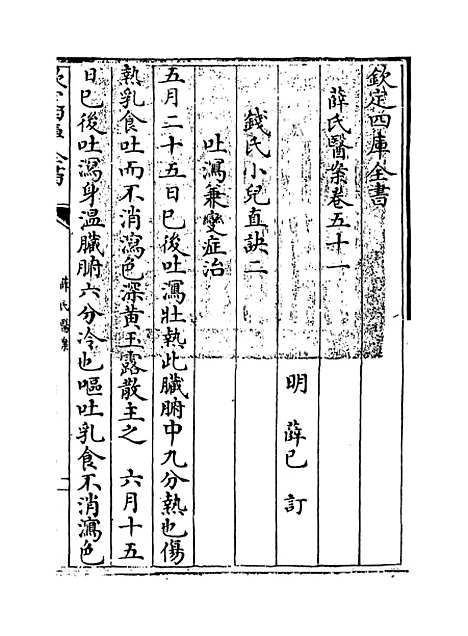 欽定四庫全書
薛氏醫案卷五十一
明 薛己 訂
錢氏小兒直訣二
吐瀉兼變症治
五月二十五日已後吐瀉壯熱此臟腑中九分熱也傷
熱乳食吐而不消瀉色深黃玉露散主之 六月十五
日已後吐瀉身温臟腑六分冷也嘔吐乳食不消瀉色
薛氏醫案